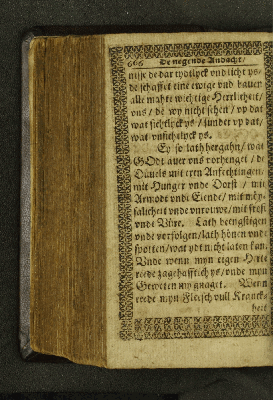 606 De negende Andacht/
nisse de dar tydtlyck vnd licht ys/
de schaffet eine ewige vnd bauen
alle mahte wichtige Herrlicheit/
vns / de wy nicht sehen / vp dat
wat sichtlyck ys / sunder vp dat/
wat vnsichtlyck ys.
Ey so lath hergahn/ wat
GOdt auer vns vorhenget / de
Düuels mit eren Anfechtingen/
mit Hunger vnde Dorst / mit
Armodt vnd Elende/ mit möy-
salicheit vnde vnrouwe/ mit frost
vnde Vüre. Lath beengstigen
vnde verfolgen/ lath hönen vnde
spotten/ wat ydt nicht laten kan.
Vnde wenn myn egen Herte
rede zagehafftich ys/ vnde myn
Geweten my gnaget. Wenn
rede myn Fleisch vull Kranck-
heit